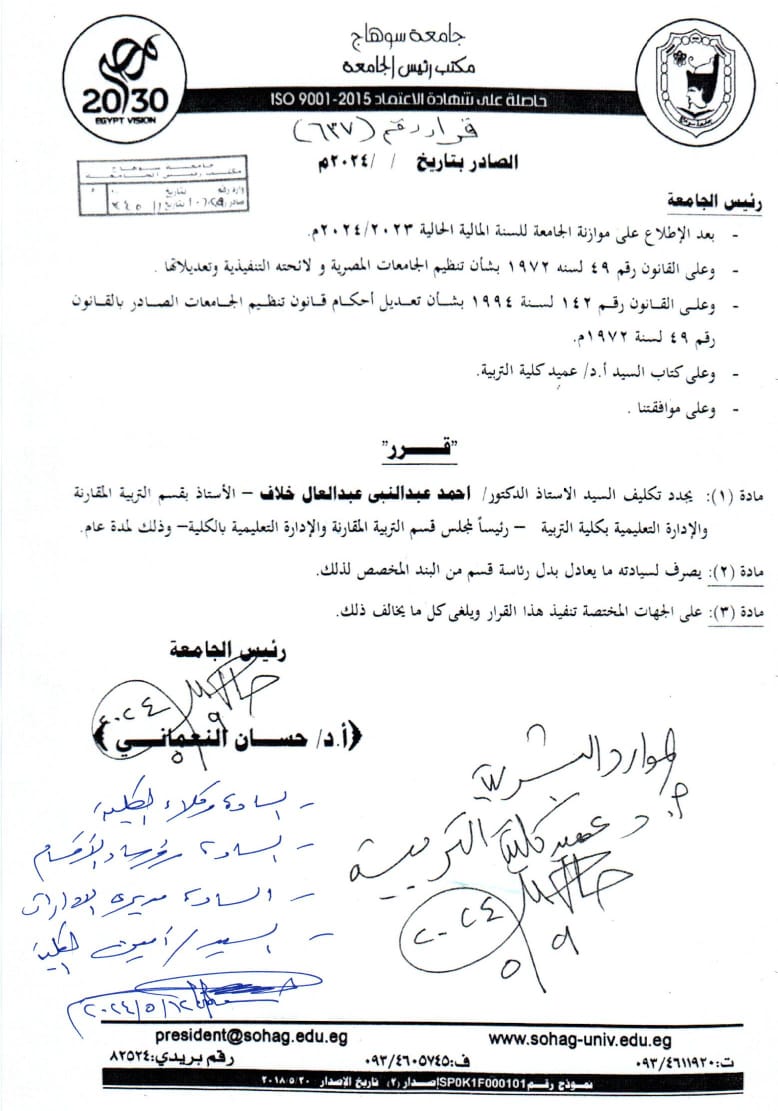 جامعة سوهاج
مكتب رئيس الجامعة
حاصلة على شهادة الاعتماد ISO 9001-2015
مصر
20/30
EGYPT VISION
قرار رقم (٦٣٧)
الصادر بتاريخ / /٢٠٢٤م
جامعة سوهاج
مكتب رئيس الجامعة
وارد رقم بتاريخ
صادر رقم بتاريخ
رئيس الجامعة
- بعد الإطلاع على موازنة الجامعة للسنة المالية الحالية ٢٠٢٤/٢٠٢٣م.
- وعلى القانون رقم ٤٩ لسنه ١٩٧٢ بشأن تنظيم الجامعات المصرية و لائحته التنفيذية وتعديلاتها .
- وعلى القانون رقم ١٤٢ لسنة ١٩٩٤ بشأن تعديل أحكام قانون تنظيم الجامعات الصادر بالقانون
رقم ٤٩ لسنة ١٩٧٢م.
- وعلى كتاب السيد أ.د/ عميد كلية التربية.
- وعلى موافقتنا .
"قـــرر"
مادة (١): يجدد تكليف السيد الاستاذ الدكتور/ احمد عبدالنبى عبدالعال خلاف – الأستاذ بقسم التربية المقارنة
والإدارة التعليمية بكلية التربية – رئيساً لمجلس قسم التربية المقارنة والإدارة التعليمية بالكلية– وذلك لمدة عام.
مادة (٢): يصرف لسيادته ما يعادل بدل رئاسة قسم من البند المخصص لذلك.
مادة (٣): على الجهات المختصة تنفيذ هذا القرار ويلغى كل ما يخالف ذلك.
رئيس الجامعة
٢٠٢٤
٥/٩
(أ.د/ حسان النعماني)
الموارد البشرية
أ.د عميد كلية التربية
٢٠٢٤
٥/٩
- السادة وكلاء الكلية
- السادة رؤساء الأقسام
- السادة مديري الادارات
- السيد/ أمين الكلية
٢٠٢٤/٥/١٢
president@sohag.edu.eg www.sohag-univ.edu.eg
ت:٠٩٣/٤٦١١٩٢٠ ف:٠٩٣/٤٦٠٥٧٤٥ رقم بريدي:٨٢٥٢٤
نموذج رقم SP0K1F000101 إصدار (٢) تاريخ الإصدار ٢٠١٨/٥/٢٠